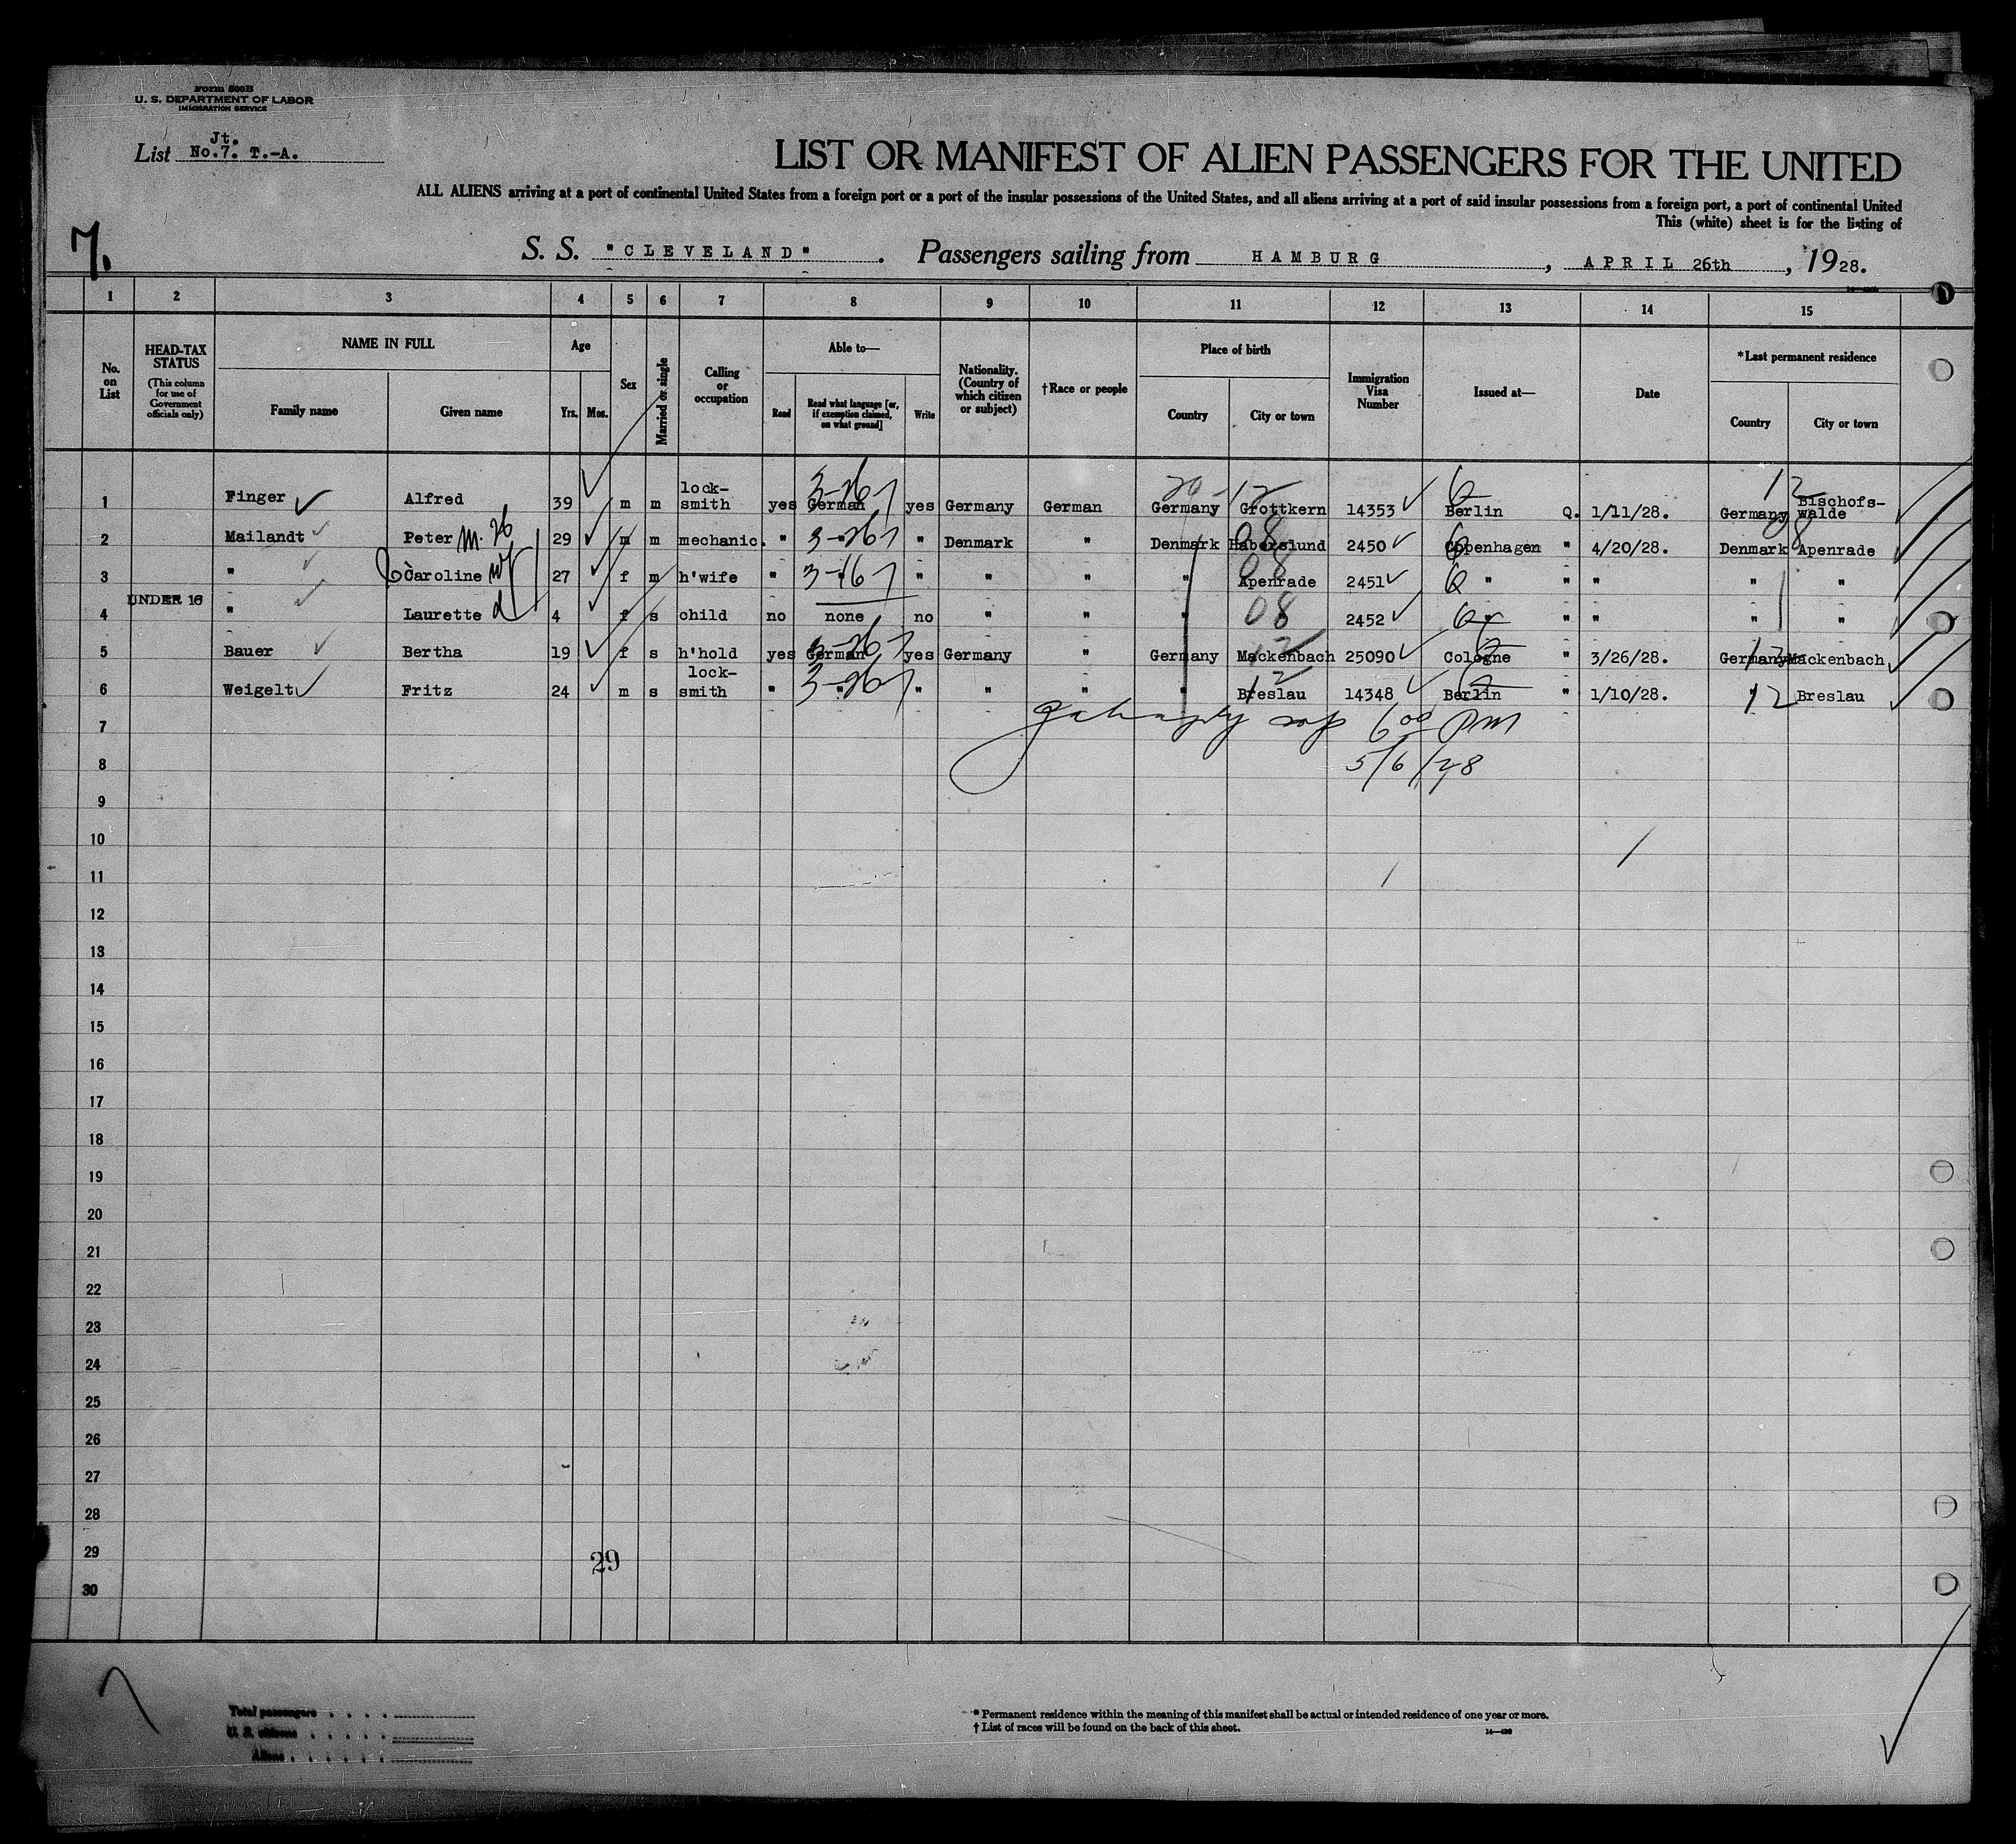 Form 500B
U. S. DEPARTMENT OF LABOR
IMMIGRATION SERVICE
Jt.
List No.7. T.-A.
LIST OR MANIFEST OF ALIEN PASSENGERS FOR THE UNITED
ALL ALIENS arriving at a port of continental United States from a foreign port or a port of the insular possessions of the United States, and all aliens arriving at a port of said insular possessions from a foreign port, a port of continental United
This (white) sheet is for the listing of
7.
S. S. "CLEVELAND". Passengers sailing from HAMBURG, APRIL 26th, 1928.
1 2 3 4 5 6 7 8 9 10 11 12 13 14 15
No. on List
HEAD-TAX STATUS
(This column for use of Government officials only)
NAME IN FULL
Family name Given name
Age
Yrs. Mos.
Sex
Married or single
Calling or occupation
Able to—
Read
Read what language [or, if exemption claimed, on what ground]
Write
Nationality. (Country of which citizen or subject)
†Race or people
Place of birth
Country City or town
Immigration Visa Number
Issued at—
Date
*Last permanent residence
Country City or town
1 Finger Alfred 39 m m lock-smith yes German 3-26 yes Germany German Germany Grottkern 20-12 14353 Berlin Q. 1/11/28. Germany Bischofs-walde 12
2 Mailandt Peter m. 26 29 m m mechanic. " " 3-26 " Denmark " Denmark Haberslund 08 2450 Copenhagen " 4/20/28. Denmark Apenrade 08
3 " Caroline wf 27 f m h'wife " " 3-16 " " " " Apenrade 08 2451 " " " " "
UNDER 16
4 " Laurette d 4 f s child no none no " " " 08 2452 " " " " "
5 Bauer Bertha 19 f s h'hold yes German 3-26 yes Germany " Germany Mackenbach 12 25090 Cologne " 3/26/28. Germany Mackenbach 12
6 Weigelt Fritz 24 m s lock-smith " " 3-26 " " " " Breslau 12 14348 Berlin " 1/10/28. " Breslau 12
7
6 00 PM
8
5/6/28
9
10
11
12
13
14
15
16
17
18
19
20
21
22
23
24
25
26
27
28
29
29
30
Total passengers
U. S. citizens
Aliens
* Permanent residence within the meaning of this manifest shall be actual or intended residence of one year or more.
† List of races will be found on the back of this sheet.